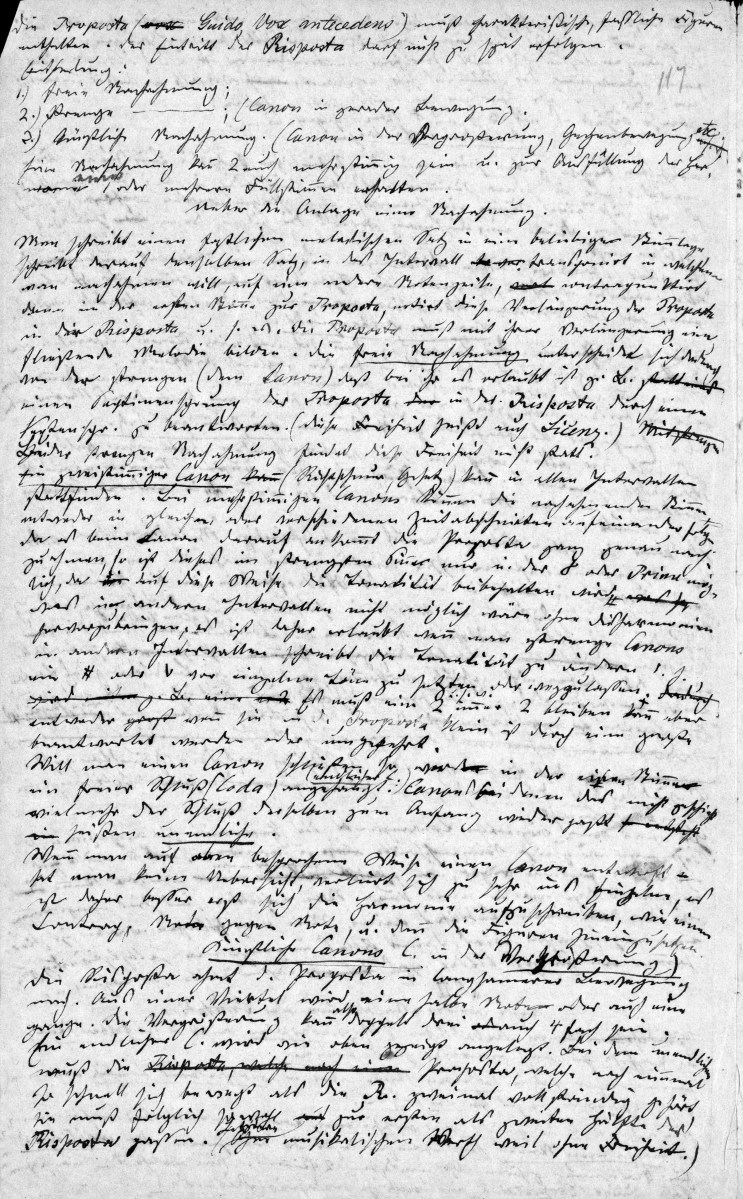 Die Proposta (Guida, Vox antecedens) muß charakteristische, faßliche Figuren
enthalten. Der Eintritt der Risposta darf nicht zu spät erfolgen.
Eintheilung:
117
1.) Freie Nachahmung;
2.) Strenge ———; (Canon in gerader Bewegung.
3.) Künstliche Nachahmung. (Canon in der Vergrößerung, Gegenbewegung etc.
Eine Nachahmung kann 2 auch mehrstimmig sein u. zur Ausfüllung der Har-
monie oder mehrere Füllstimmen erhalten.
Ueber die Anlage einer Nachahmung.
Man schreibt einen faßlichen melodischen Satz in eine beliebige Stimmlage
schreibt darauf denselben Satz, in das Intervall transponirt in welchem
man nachahmen will, auf eine andere Notenzeile, contrapunktirt
dann in der ersten Stimme zur Proposta, notirt diese Verlängerung der Proposta
in der Risposta u. s. w. Die Proposta muß mit ihrer Verlängerung eine
fließende Melodie bilden. Die freie Nachahmung unterscheidet sich dadurch
von der strengen (dem Canon) daß bei ihr es erlaubt ist z. B.
einen Septimensprung der Proposta in der Risposta durch einen
Sextenspr. zu beantworten. (Diese Freiheit heißt auch Licenz.)
Bei der strengen Nachahmung findet diese Freiheit nicht statt.
Ein zweistimmiger Canon (Richtschnur, Gesetz) kann in allen Intervallen
stattfinden. Bei mehrstimmigen Canons können die nachahmenden Stimmen
entweder in gleichen oder verschiedenen Zeitabschnitten aufeinander folgen
da es beim Canon darauf ankommt die Proposta ganz genau nach-
zuahmen, so ist dieses im strengsten Sinne nur in der 8 oder Prime mög-
lich, da auf diese Weise die Tonalität beibehalten wird
dies in andern Intervallen nicht möglich wäre ohne Disharmonien
hervorzubringen, es ist daher erlaubt wenn man strenge Canons
in andern Intervallen schreibt die Tonalität zu ändern
ein # oder b vor einzelne Töne zu setzen oder wegzulassen.
z. B. Es muß eine 2 immer 2 bleiben kann aber
entweder groß wenn sie in d. Proposta klein ist durch eine große
beantwortet werden oder umgekehrt.
Will man einen Canon schließen so in der einen Stimme
ein freier Schluß (Coda) angehängt: (endlicher) Canons bei denen das nicht geschieht
vielmehr der Schluß derselben zum Anfang wieder paßt
heißen unendliche.
Wenn man auf oben besprochene Weise einen Canon entwirft
hat man keine Uebersicht, verliert sich zu sehr ins Einzelne, es
ist daher besser erst sich die Harmonie aufzuschreiben, wie einen
Contrap. Note gegen Note, u. dann die Figuren hineinzusetzen
Künstliche Canons C. in der Vergrößerung)
Die Risposta ahmt d. Proposta in langsamerer Bewegung
nach. Aus einer Viertel wird eine halbe Note oder auch eine
ganze. Die Vergrößerung kann also doppelt drei auch 4fach sein.
Ein endlicher C. wird wie oben gezeigt angelegt. Bei dem unendlichen
muß die Proposta, welche noch einmal
so schnell sich bewegt als die R. zweimal vollständig gehört
sie muß folglich sowohl zur ersten als zweiten Hälfte der
Risposta passen. (ohne musikalischen Werth weil ohne Freiheit.)